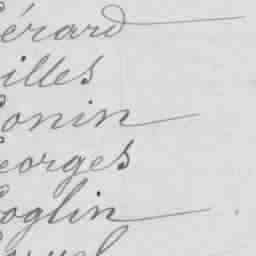 érard
illes
onin
eorges
oglin